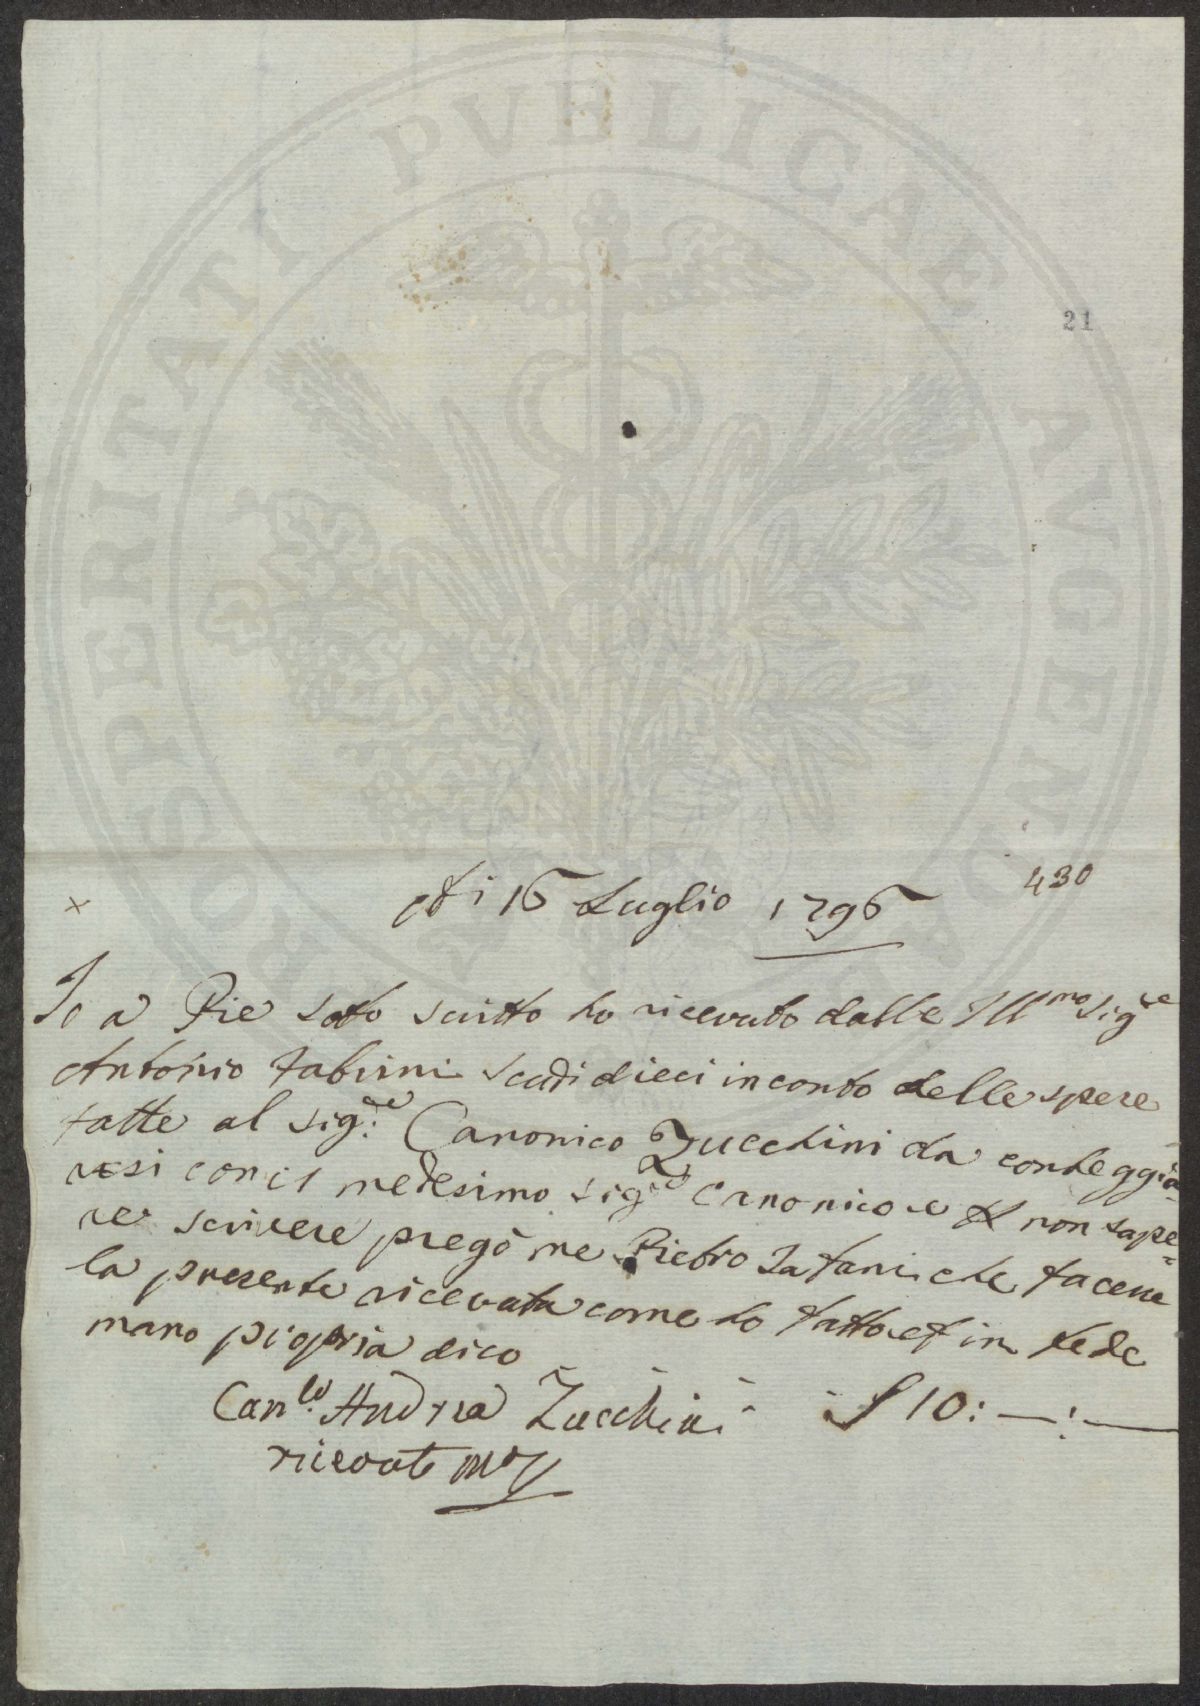 PROSPERITATI PVBLICAE AVGENDAE
21
430
Adi 16 Luglio 1796
x
Io a Pie sotto scritto ho ricevuto dalle Illmo Sigre
Antonio Fabrini Scudi dieci in conto delle spese
fatte al Sigre: Canonico Zucchini da conteggia-
resi con il medesimo Sigre Canonico e P non sape=
re scrivere pregò me Pietro Zafani che facene
la presente ricevuta come ho fatto et in fede
mano propria dico
Canco: Andrea Zucchini S 10: — : —
ricevuto